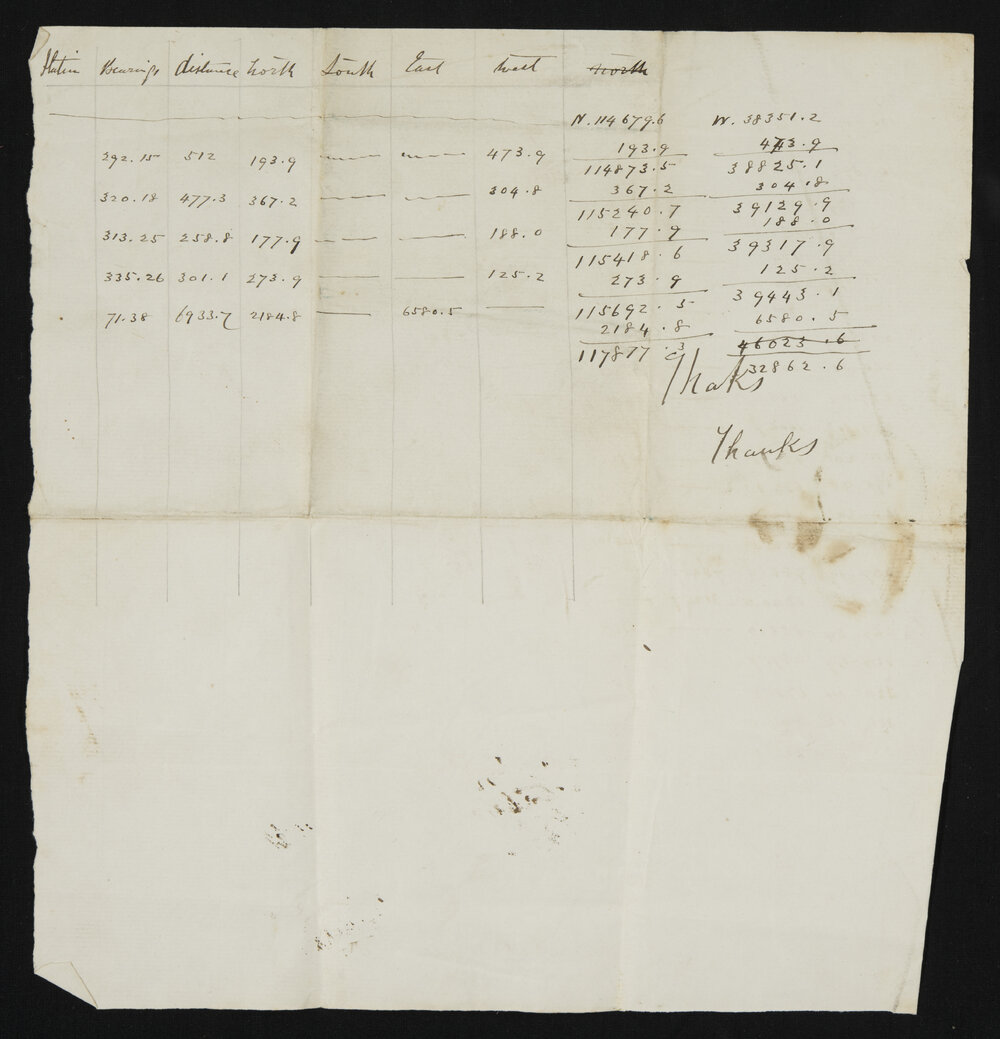 Station Bearings distance North South East West ~~North~~
N. 114679.6 W. 38351.2
292.15 512 193.9 — — 473.9 193.9 473.9
114873.5 38825.1
320.18 477.3 367.2 — — 304.8 367.2 304.8
115240.7 39129.9
313.25 258.8 177.9 — — 188.0 177.9 188.0
115418.6 39317.9
335.26 301.1 273.9 — — 125.2 273.9 125.2
115692.5 39443.1
71.38 6933.7 2184.8 — 6580.5 — 2184.8 6580.5
117877.3 ~~46023.6~~
32862.6
Thaks
Thanks